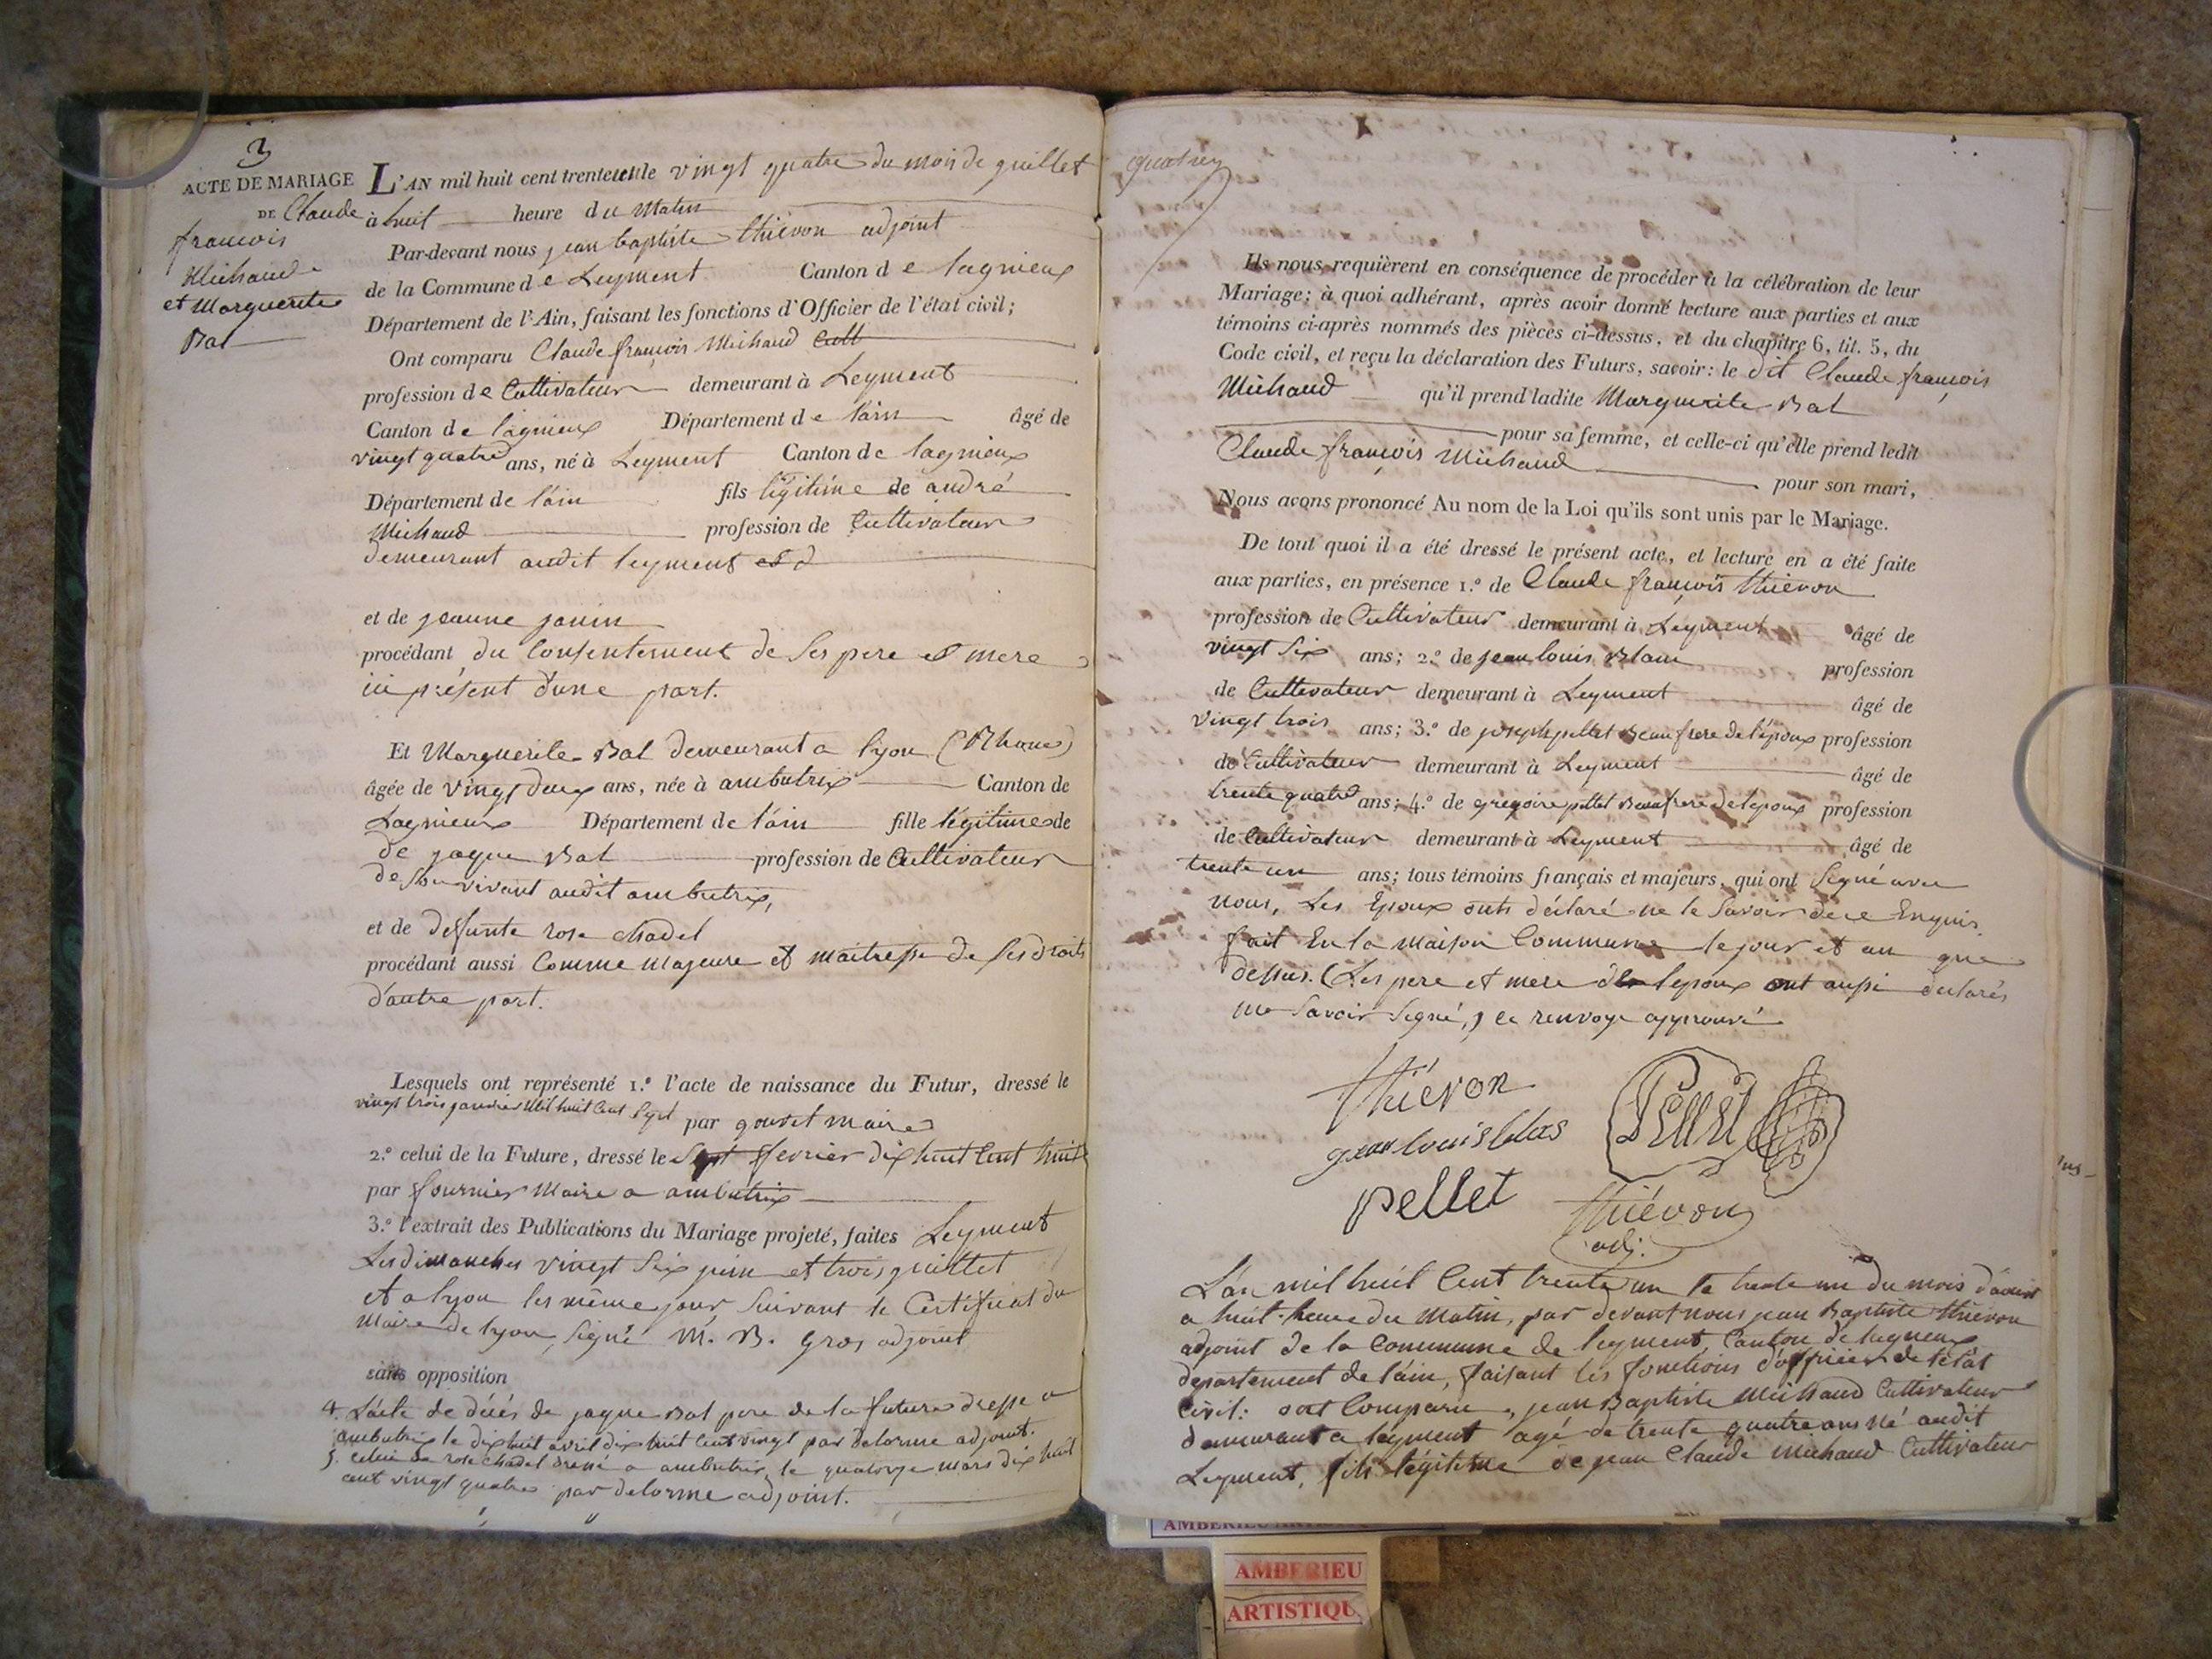 3
ACTE DE MARIAGE
DE Claude
françois
Michaud
et Marguerite
Bal
L'AN mil huit cent trente un le vingt quatre du mois de juillet
à huit heure du Matin
Par-devant nous jean baptiste thiévon adjoint
de la Commune de Leyment Canton de lagnieux
Département de l'Ain, faisant les fonctions d'Officier de l'état civil;
Ont comparu Claude françois Michaud Cult
profession de Cultivateur demeurant à Leyment
Canton de lagnieux Département de l'ain âgé de
vingt quatre ans, né à Leyment Canton de lagnieux
Département de l'ain fils légitime de andré
Michaud profession de Cultivateur
demeurant audit leyment et d
et de jeanne janin
procédant du Consentement de Ses pere et mere
ici présent d'une part.
Et Marguerite Bal demeurant a lyon (Rhone)
âgée de vingt deux ans, née à ambutrix Canton de
Lagnieux Département de l'ain fille légitime de
de jaque Bal profession de Cultivateur
de Son vivant audit ambutrix,
et de defunte rose chadel
procédant aussi Comme Majeure et maitresse de ses droits
d'autre part.
Lesquels ont représenté 1.º l'acte de naissance du Futur, dressé le
vingt trois janvier Mil huit Cent Sept par gouvet maire
2.º celui de la Future, dressé le Sept fevrier dix huit Cent huit
par fournier Maire a ambutrix
3.º l'extrait des Publications du Mariage projeté, faites Leyment
Les dimanches vingt Six juin et trois juillet
et a lyon les même jour, Suivant le Certificat du
Maire de lyon, Signé M. B. Gros adjoint
sans opposition
4. L'acte de décés de jaque Bal pere de la future dressé a
ambutrix le dix huit avril dix huit Cent vingt par delorme adjoint.
5. Celui de rose chadel dressé a ambutrix, le quatorze mars dix huit
cent vingt quatre par delorme adjoint.
Ils nous requièrent en conséquence de procéder à la célébration de leur
Mariage; à quoi adhérant, après avoir donné lecture aux parties et aux
témoins ci-après nommés des pièces ci-dessus, et du chapitre 6, tit. 5, du
Code civil, et reçu la déclaration des Futurs, savoir: le dit Claude françois
Michaud qu'il prend ladite Marguerite Bal
pour sa femme, et celle-ci qu'elle prend ledit
Claude françois Michaud
pour son mari,
Nous avons prononcé Au nom de la Loi qu'ils sont unis par le Mariage.
De tout quoi il a été dressé le présent acte, et lecture en a été faite
aux parties, en présence 1.º de Claude françois thiévon
profession de Cultivateur demeurant à Leyment âgé de
vingt Six ans; 2.º de jean louis Blanc profession
de Cultivateur demeurant à Leyment âgé de
vingt trois ans; 3.º de joseph pellet Beaufrere de l'époux profession
de Cultivateur demeurant à Leyment âgé de
trente quatre ans; 4.º de gregoire pellet Beaufrere de lepoux profession
de Cultivateur demeurant à Leyment âgé de
trente un ans; tous témoins français et majeurs, qui ont Signé avec
nous, Les Epoux onts déclaré ne le Savoir de ce Enquis.
fait En la maison Commune le jour et an que
dessus. (Les pere et mere de lepoux ont aussi declarés
ne Savoir Signé,) ce renvoye approuvé
thiévon
Pellet
jean louis
pellet
thiévon
adj.
L'an mil huit Cent trente un le trente un du mois d'aoust
a huit heure du Matin, par devant nous jean Baptiste thiévon
adjoint de la Commune de leyment, Canton de lagneux
departement de l'ain, faisant les fonctions d'officier de l'état
Civil: ont Comparu, jean Baptiste Michaud Cultivateur
demeurant a leyment agé de trente quatre ans né audit
Leyment, fils légitime de jean Claude michaud Cultivateur
AMBERIEU
ARTISTIQU